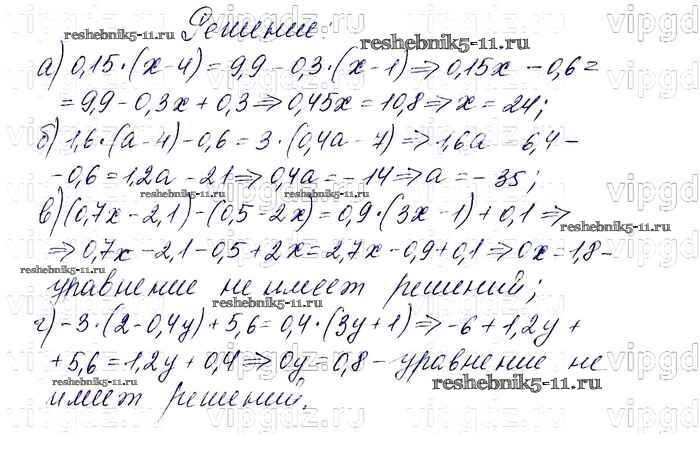 Решение:
а) 0,15·(x-4)=9,9-0,3·(x-1)⇒0,15x-0,6=
=9,9-0,3x+0,3⇒0,45x=10,8⇒x=24;
б) 1,6·(a-4)-0,6=3·(0,4a-7)⇒1,6a-6,4-
-0,6=1,2a-21⇒0,4a=-14⇒a=-35;
в) (0,7x-2,1)-(0,5-2x)=0,9·(3x-1)+0,1⇒
⇒0,7x-2,1-0,5+2x=2,7x-0,9+0,1⇒0x=1,8-
уравнение не имеет решений;
г) -3·(2-0,4y)+5,6=0,4·(3y+1)⇒-6+1,2y+
+5,6=1,2y+0,4⇒0y=0,8-уравнение не
имеет решений.
reshebnik5-11.ru
reshebnik5-11.ru
reshebnik5-11.ru
reshebnik5-11.ru
reshebnik5-11.ru
reshebnik5-11.ru
reshebnik5-11.ru
reshebnik5-11.ru
reshebnik5-11.ru
vipgdz.ru